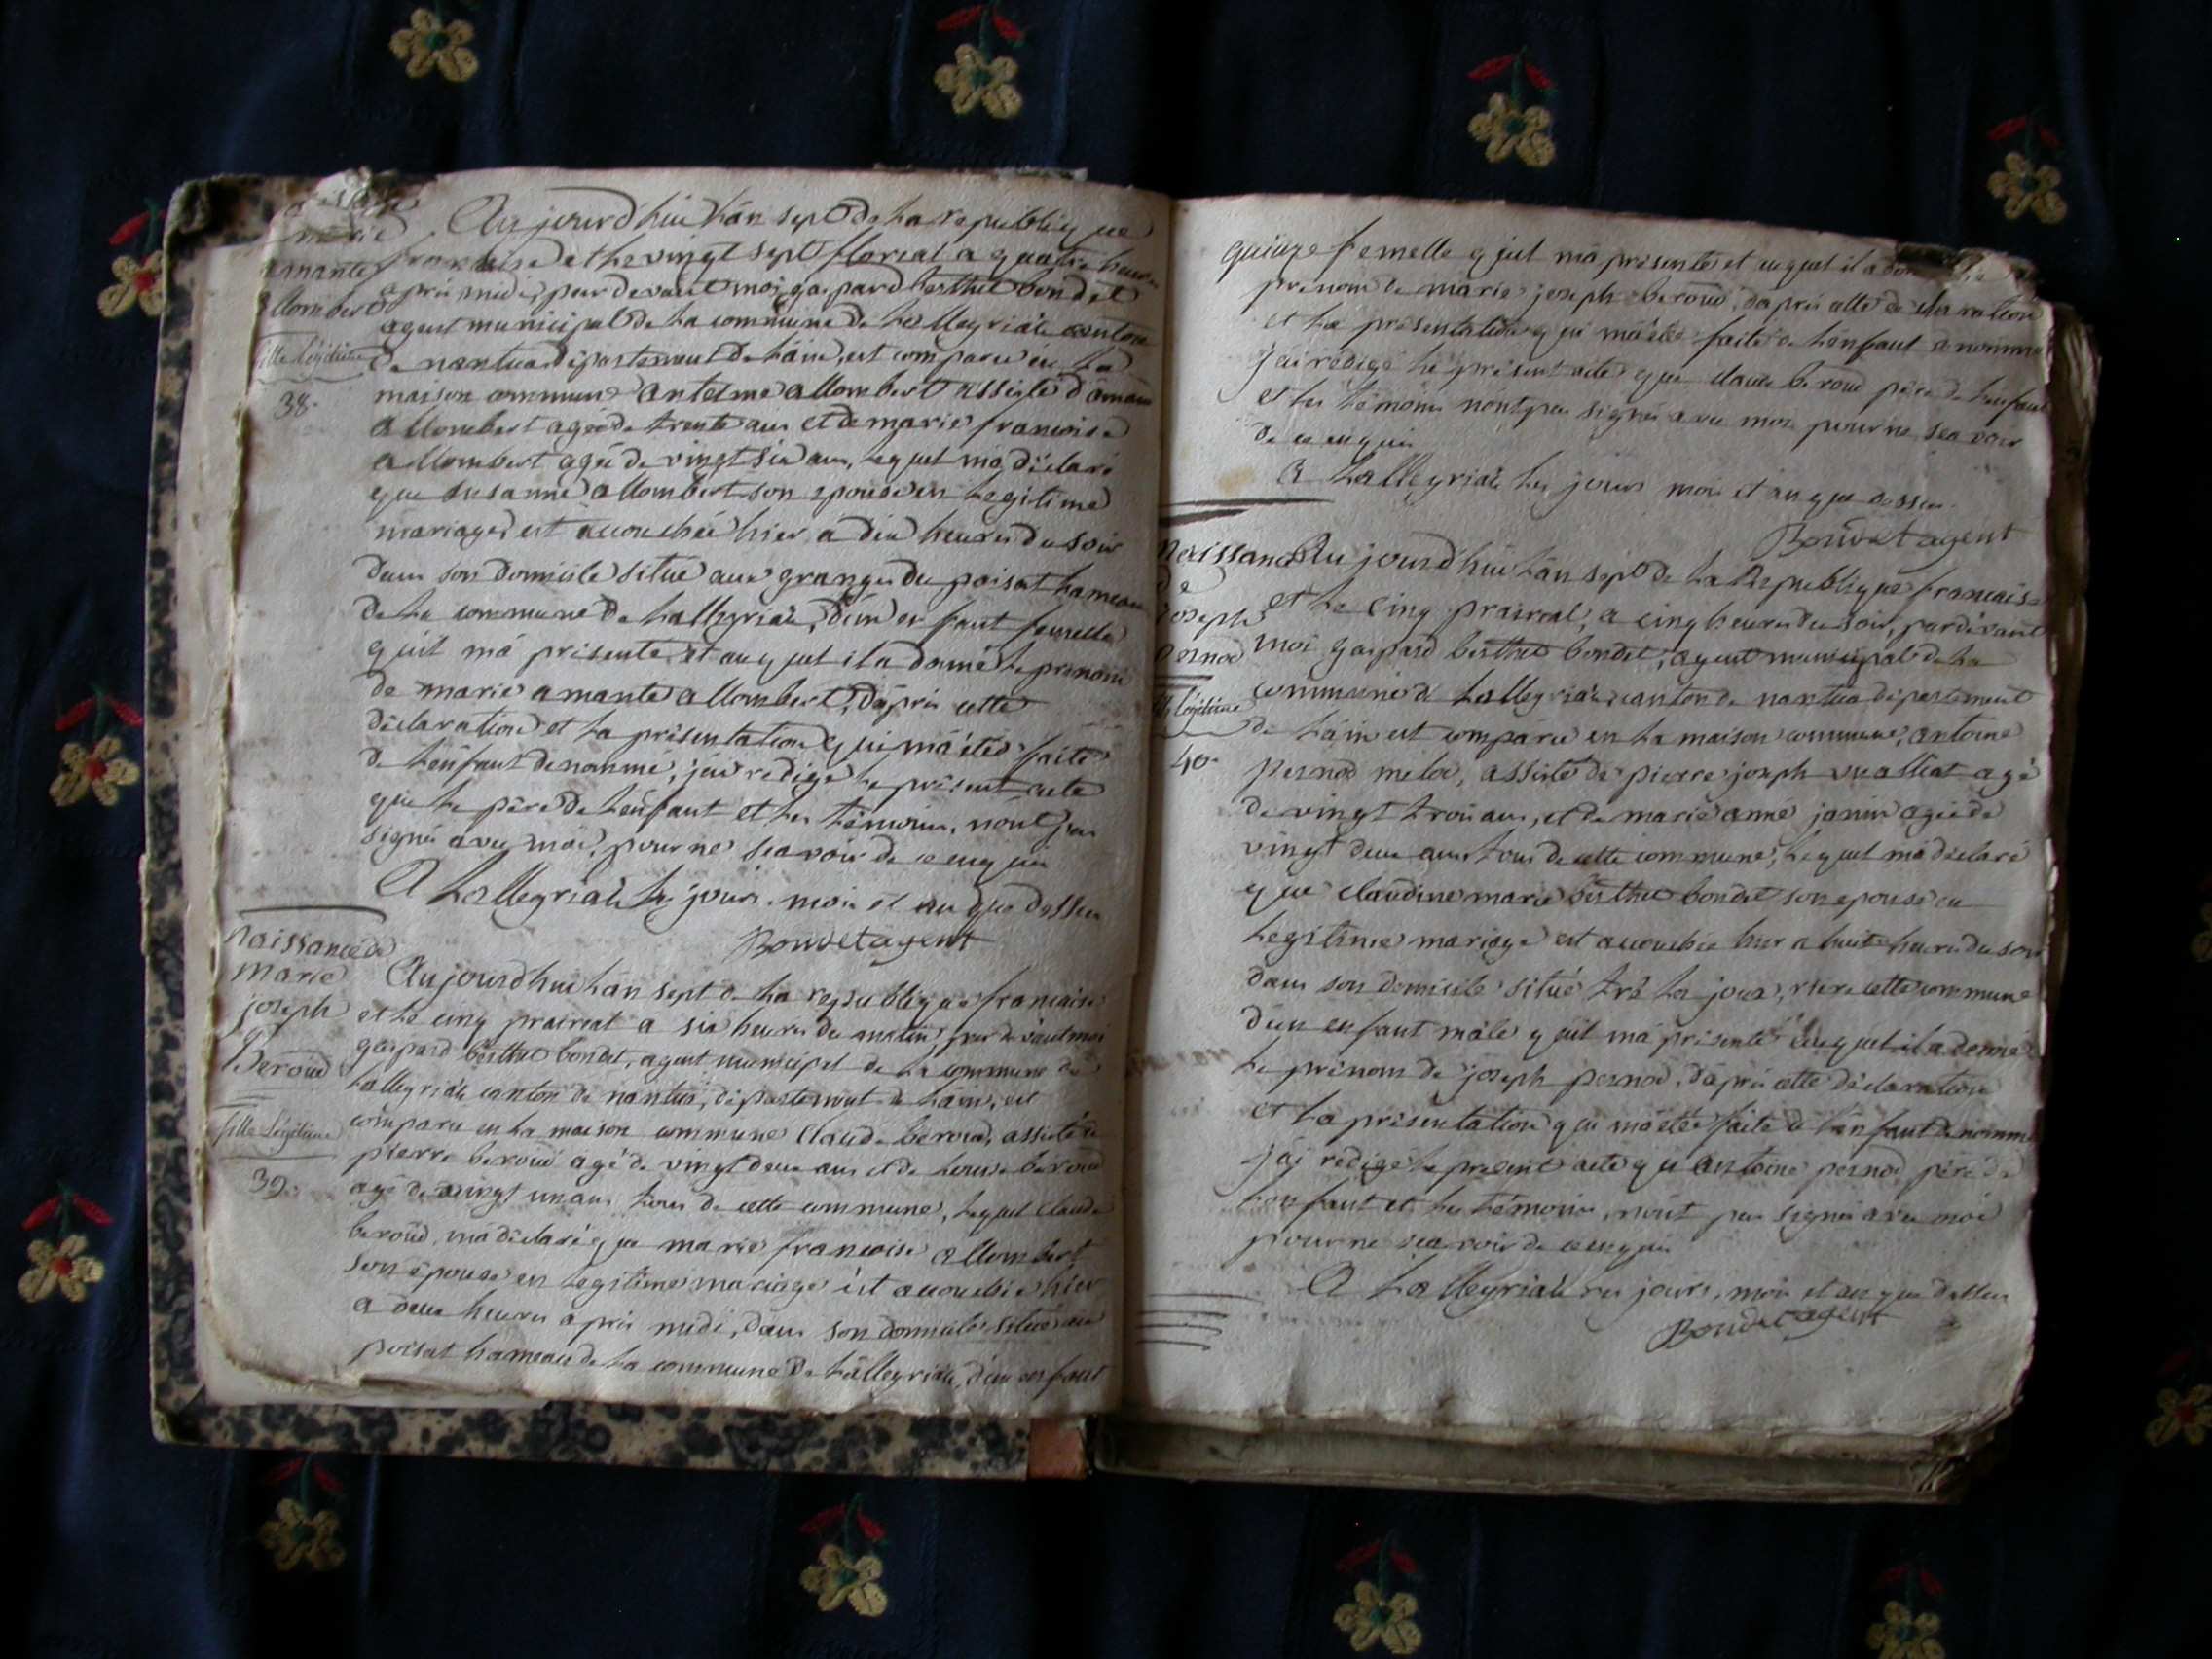 marie
amante
allombert
fille légitime
38.
Aujourd'hui l'an sept de la republique
francaise et le vingt sept floreal a quatre heures
aprés midi, par devant moi gaspard berthet bondet
agent municipal de la commune de Lalleyriat canton
de nantua departement de l'ain, est comparu en la
maison commune antelme allombert assisté d'
allombert agé de trente ans et de marie francoise
allombert agée de vingt six ans, lequel m'a déclaré
que susanne allombert son epouse en legitime
mariage, est accouchée hier à dix heures du soir
dans son domicile situé aux granges du poisat hameau
de la commune de Lalleyriat, d'un enfant femelle
qu'il m'a presenté et auquel il a donné le prenom
de marie amante allombert, d'aprés cette
déclaration et la présentation qui m'a été faite
de l'enfant denommé, j'ai redigé le présent acte
que le pére de l'enfant et les témoins, n'ont pas
signé avec moi, pour ne scavoir de ce enquis
A Lalleyriat les jours, mois et an que dessus
Bondet agent
naissance de
marie
joseph
Beroud
fille légitime
39.
Aujourd'hui l'an sept de la republique francaise
et le cinq prairial a six heures du matin, par devant moi
gaspard berthet bondet, agent municipal de la commune de
Lalleyriat canton de nantua, departement de l'ain, est
comparu en la maison commune Claude beroud, assisté de
pierre beroud agé de vingt deux ans et de Louise beroud
agé de vingt un ans tous de cette commune, lequel Claude
beroud, m'a déclaré que marie francoise allombert
son épouse en legitime mariage est accouchée hier
a deux heures aprés midi, dans son domicile situé au
poisat hameau de la commune de Lalleyriat, d'un enfant
femelle qu'il m'a présenté et auquel il a
prenom de marie joseph beroud, d'aprés cette déclaration
et la présentation qui m'a été faite de l'enfant denommé
j'ai rédigé le présent acte que claude beroud pére de l'enfant
et les témoins n'ont pas signé avec moi pour ne scavoir
de ce enquis
A Lalleyriat les jours mois et an que dessus
Bondet agent
naissance
de
joseph
pernod
fils légitime
40.
Aujourd'hui l'an sept de la Republique francaise
et le cinq prairial, a cinq heures du soir, pardevant
moi gaspard berthet bondet, agent municipal de la
commune de Lalleyriat canton de nantua departement
de l'ain est comparu en la maison commune, antoine
pernod, assisté de pierre joseph agé
de vingt trois ans, et de marie anne janin agée de
vingt deux ans tous de cette commune, lequel m'a déclaré
que claudine marie berthet bondet son epouse en
legitime mariage est accouchée hier a huit heures du soir
dans son domicile situé cette commune
d'un enfant mâle qu'il m'a présenté auquel il a donné
le prénom de joseph pernod, d'aprés cette déclaration
et la présentation qui m'a été faite de l'enfant denommé
j'ai redigé le présent acte qu'antoine pernod pére de
l'enfant et les témoins, n'ont pas signé avec moi
pour ne scavoir de ce enquis
A Lalleyriat les jours, mois et an que dessus
Bondet agent